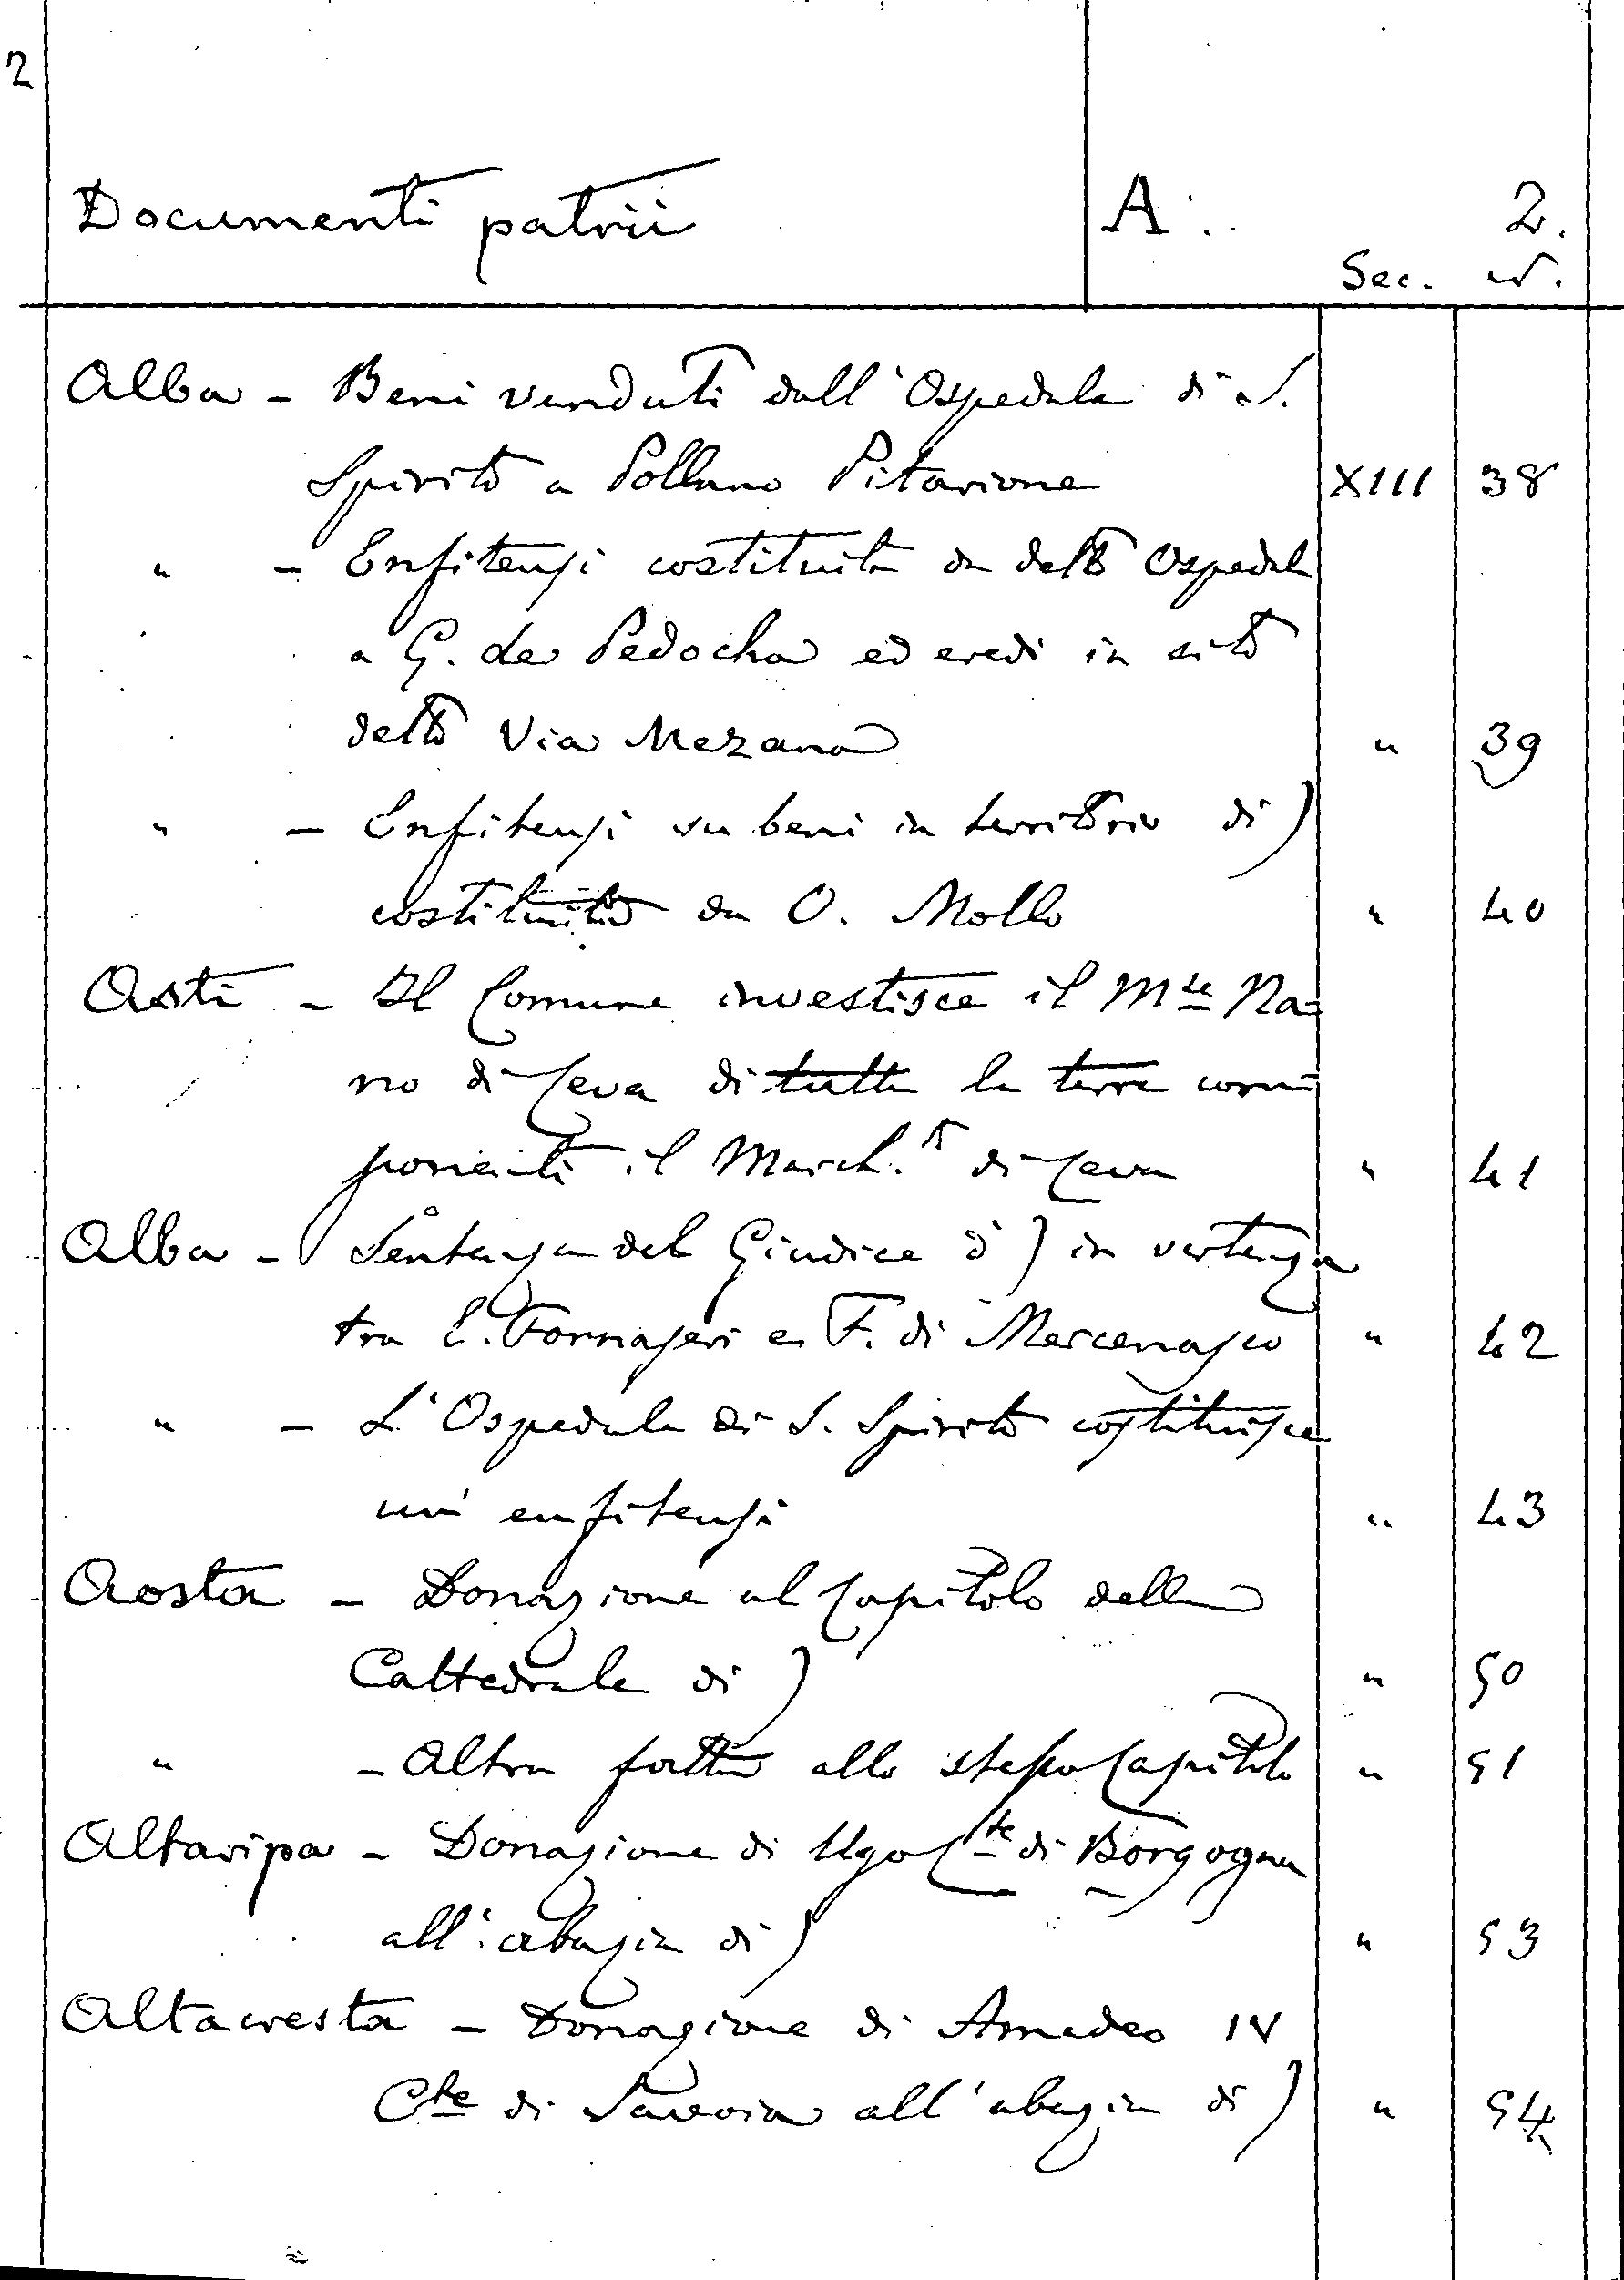 2
Documenti patrii A. 2.
Sec. N.
Alba - Beni venduti dall'Ospedale di S.
Spirito a Pollano Pitavione XIII 38
" - Enfiteusi costituita da detto Ospedale
a G. de Pedocha ed eredi in sito
detto Via Mezana " 39
" - Enfiteusi su beni in territorio di )
costituita da O. Mollo " 40
Asti - Il Comune investisce il Mse Na=
no di Ceva di tutte le terre com=
ponenti il March.to di Ceva " 41
Alba - Sentenza del Giudice d' ) in vertenza
tra E. Fornaseri e F. di Mercenasco " 42
" - L'Ospedale di S. Spirito costituisce
un'enfiteusi " 43
Aosta - Donazione al Capitolo della
Cattedrale di ) " 50
" - Altra fatta allo stesso Capitolo " 51
Altaripa - Donazione di Ugo Cte di Borgogna
all'abazia di ) " 53
Altacresta - Donazione di Amedeo IV
Cte di Savoia all'abazia di ) " 54